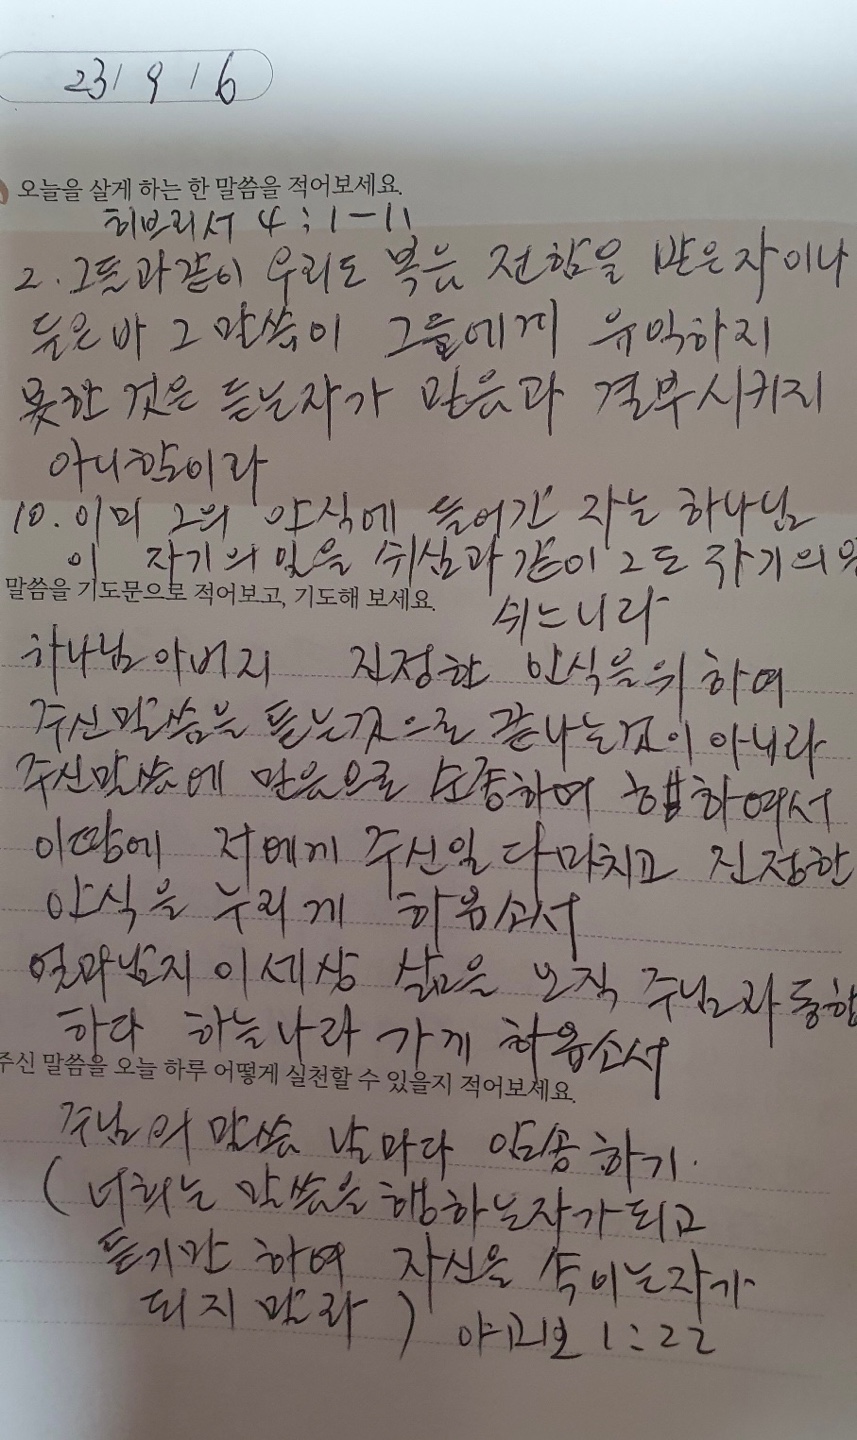 23/ 9 / 6
오늘을 살게 하는 한 말씀을 적어보세요.
히브리서 4:1-11
2. 그들과 같이 우리도 복음 전함을 받은 자이나
들은바 그 말씀이 그들에게 유익하지
못한 것은 듣는자가 믿음과 결부시키지
아니함이라
10. 이미 그의 안식에 들어간 자는 하나님
이 자기의 일을 쉬심과 같이 그도 자기의
말씀을 기도문으로 적어보고, 기도해 보세요.
쉬느니라
하나님아버지 진정한 안식을위하여
주신말씀을 듣는것으로 끝나는것이 아니라
주신말씀에 믿음으로 순종하며 행하여서
이땅에 저에게 주신일 다 마치고 진정한
안식을 누리게 하옵소서
얼마남지 이세상 삶을 오직 주님과 동행
하다 하늘나라 가게 하옵소서
주신 말씀을 오늘 하루 어떻게 실천할 수 있을지 적어보세요.
주님의 말씀 날마다 암송하기.
(너희는 말씀을 행하는자가 되고
듣기만 하여 자신을 속이는자가
되지 말라) 야고보 1:22